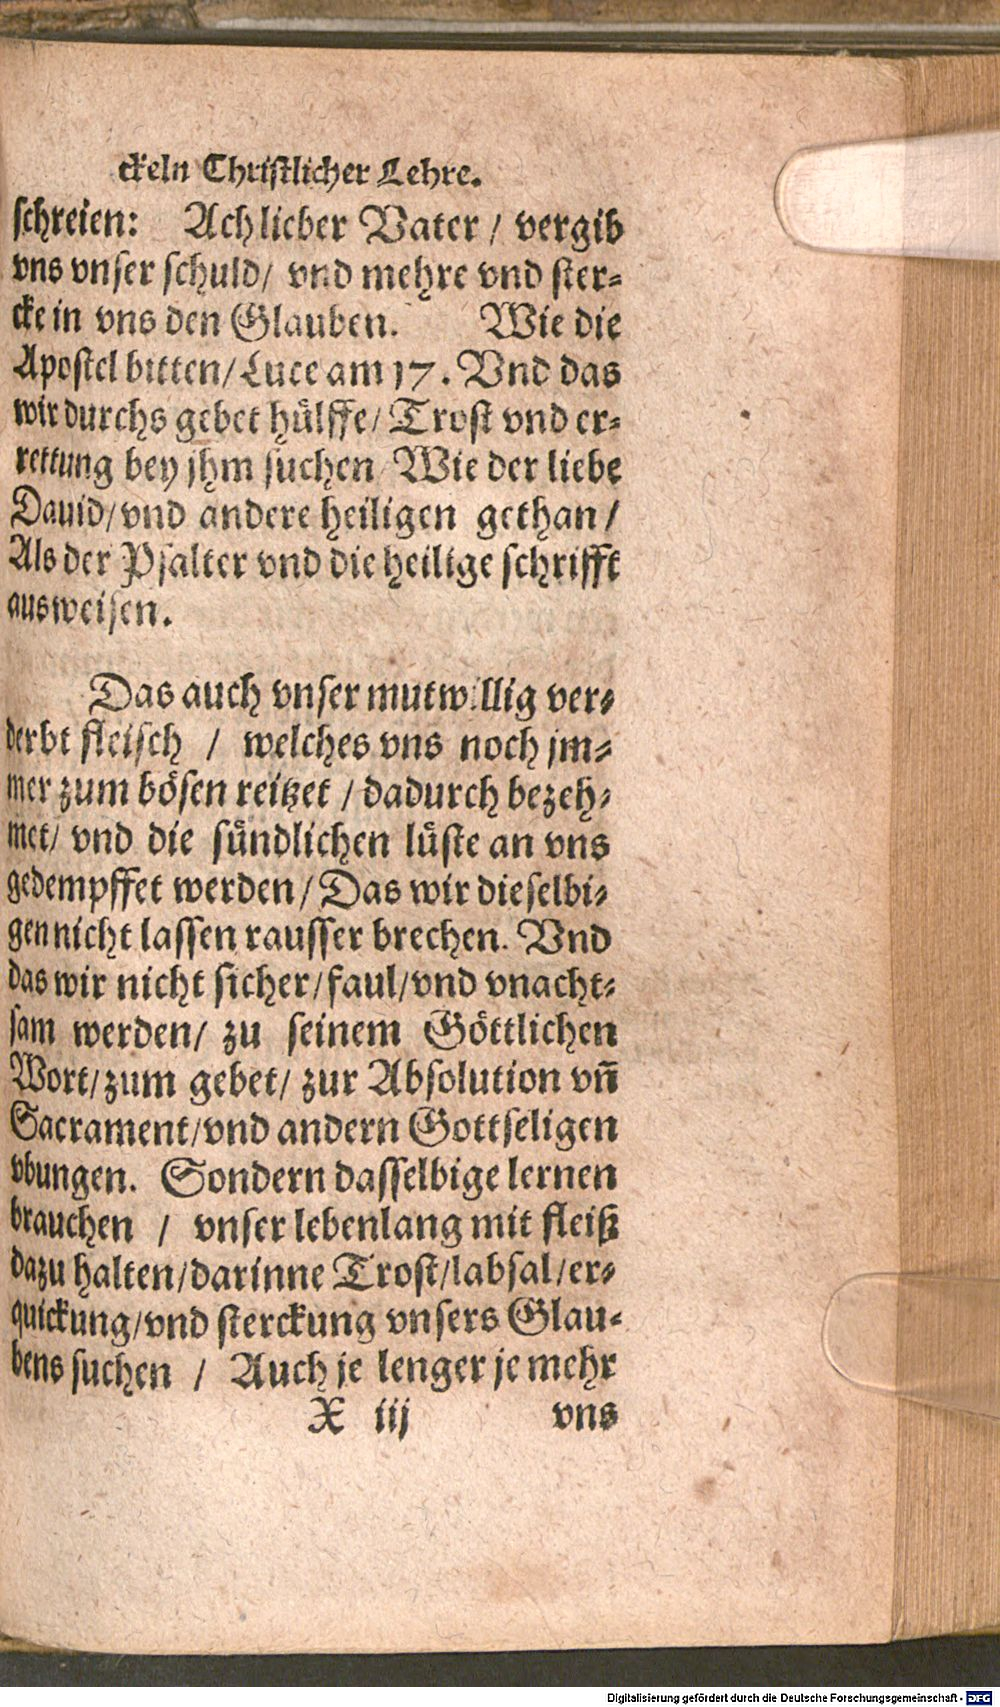 ckeln Christlicher Lehre.
schreien: Ach lieber Vater / vergib
vns vnser schuld / vnd mehre vnd ster⸗
cke in vns den Glauben. Wie die
Apostel bitten / Luce am 17. Vnd das
wir durchs gebet hülffe / Trost vnd er⸗
rettung bey jhm suchen / Wie der liebe
Dauid / vnd andere heiligen gethan /
Als der Psalter vnd die heilige schrifft
ausweisen.
Das auch vnser mutwillig ver⸗
derbt fleisch / welches vns noch jm⸗
mer zum bösen reitzet / dadurch bezeh⸗
met / vnd die sündlichen lüste an vns
gedempffet werden / Das wir dieselbi⸗
gen nicht lassen rausser brechen. Vnd
das wir nicht sicher / faul / vnd vnacht⸗
sam werden / zu seinem Göttlichen
Wort / zum gebet / zur Absolution vn̄
Sacrament / vnd andern Gottseligen
vbungen. Sondern dasselbige lernen
brauchen / vnser lebenlang mit fleiß
dazu halten / darinne Trost / labsal / er⸗
quickung / vnd sterckung vnsers Glau⸗
bens suchen / Auch je lenger je mehr
X iij vns
Digitalisierung gefördert durch die Deutsche Forschungsgemeinschaft - DFG